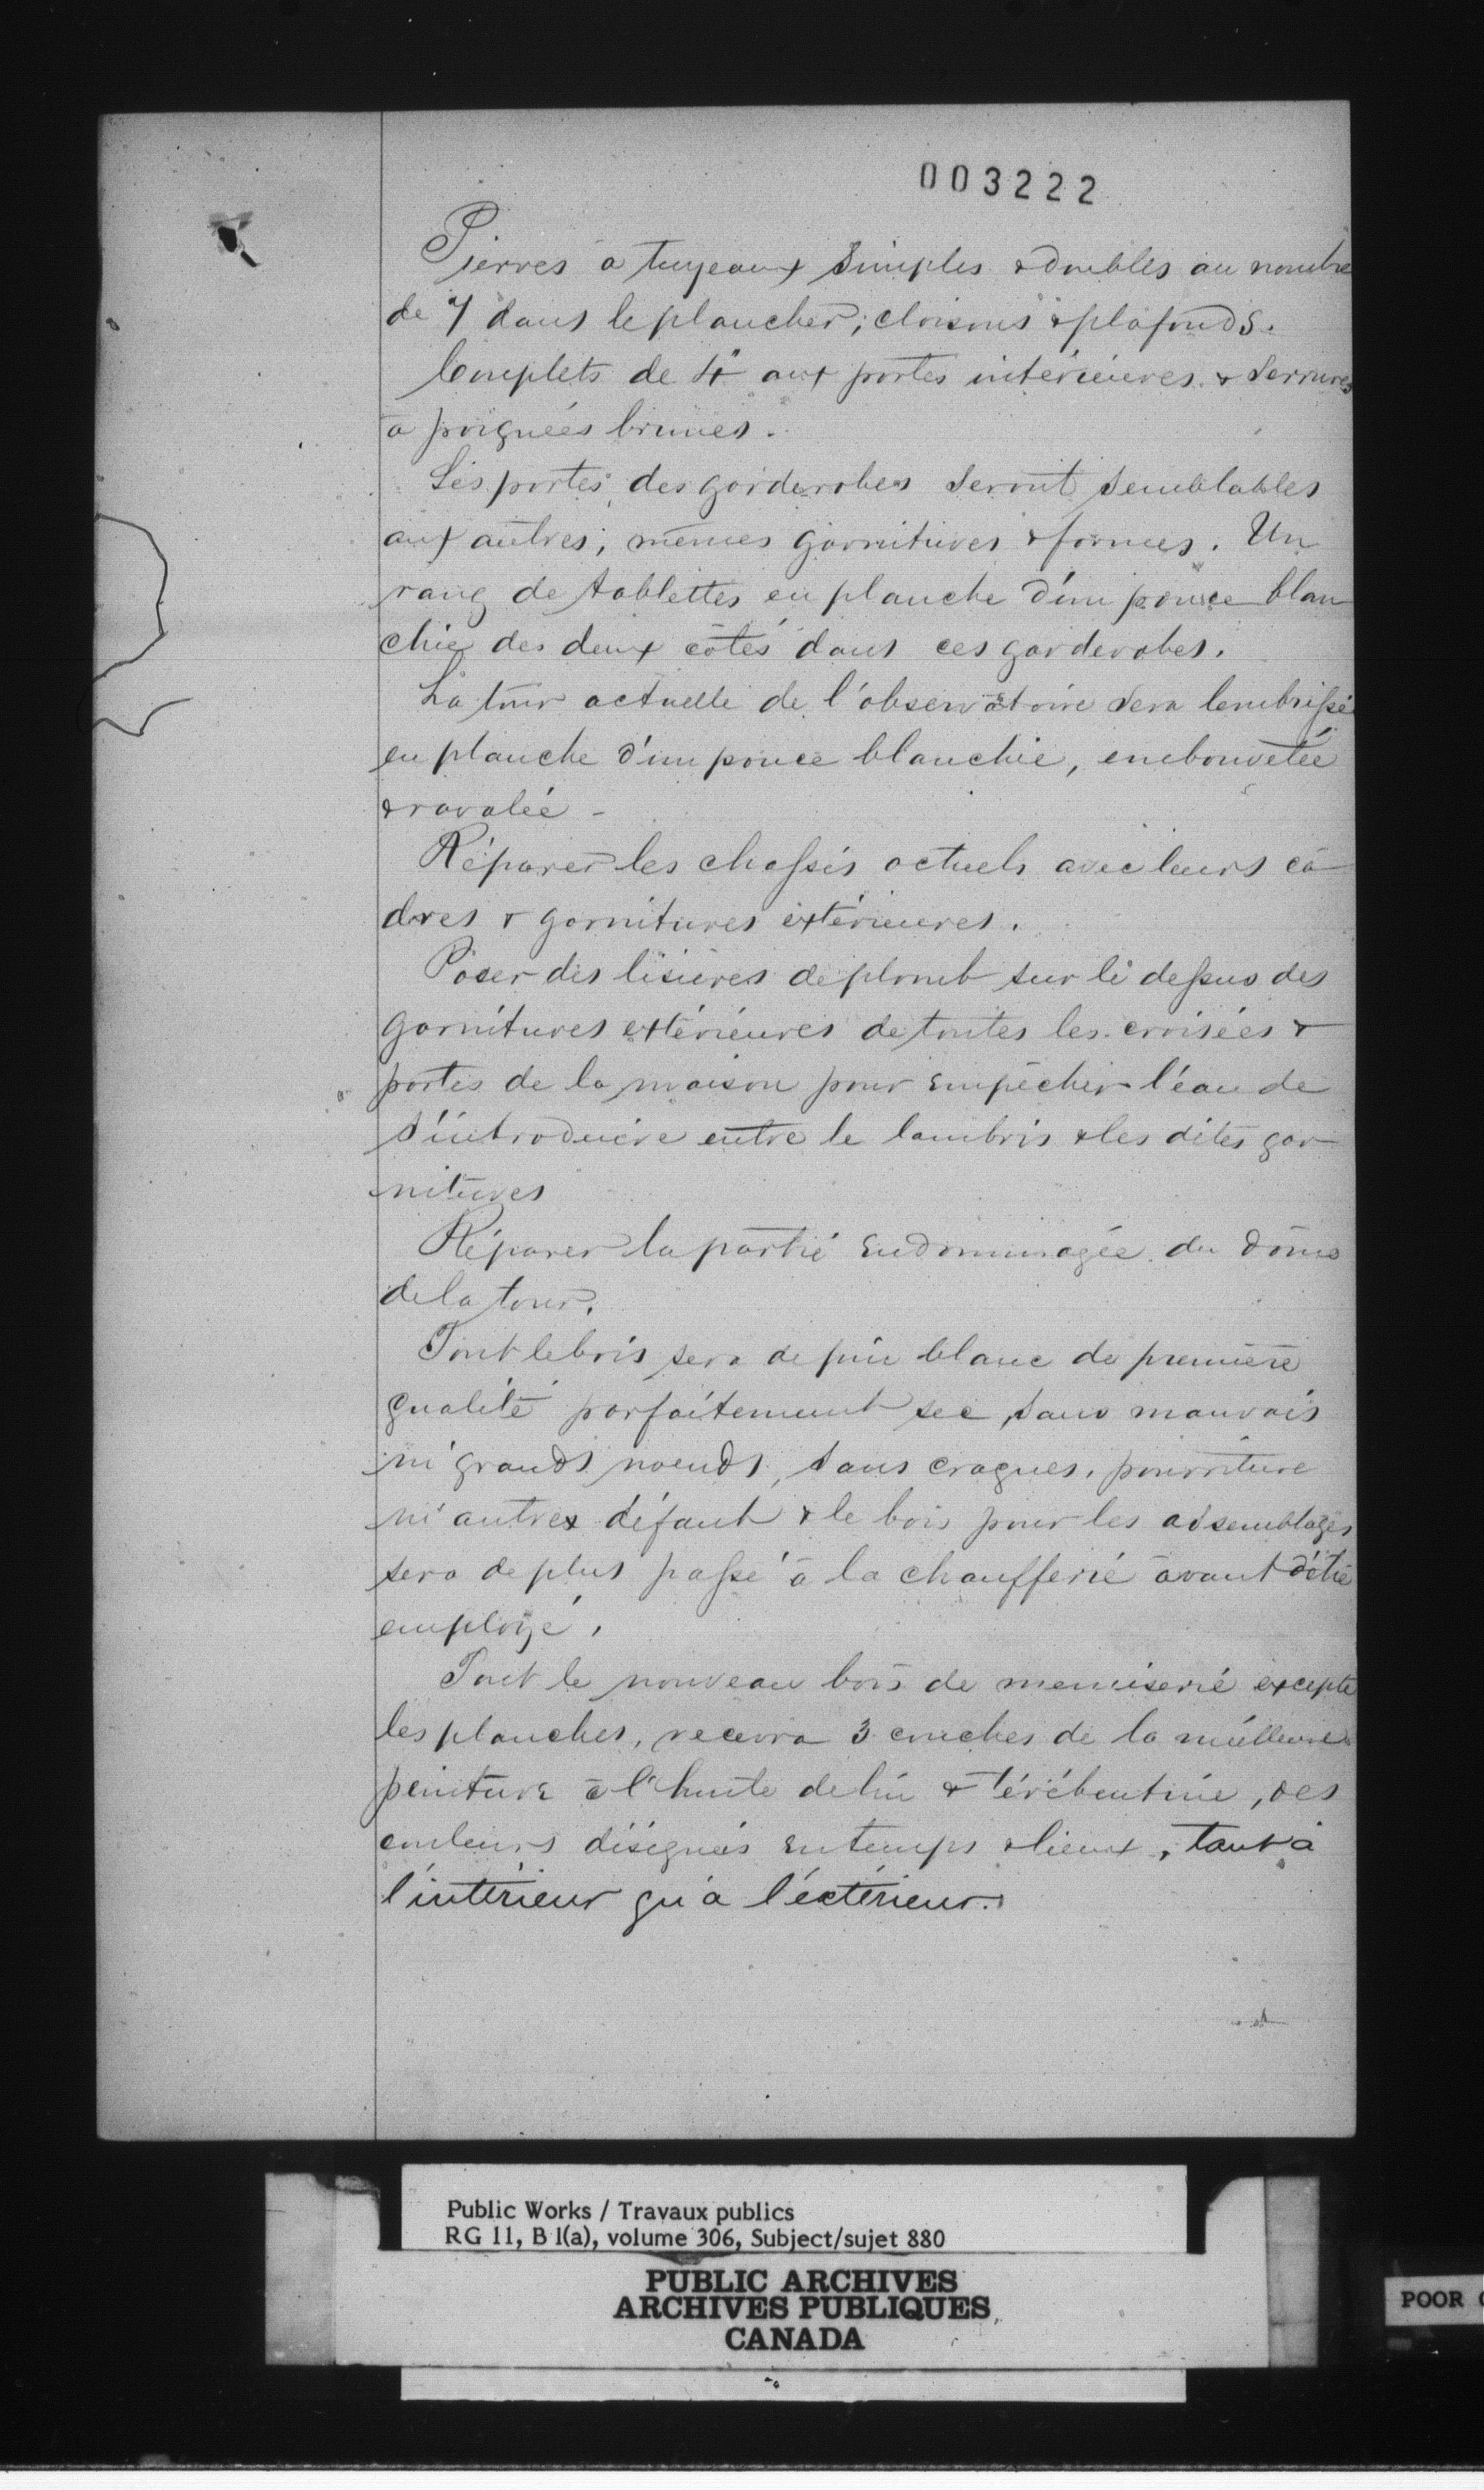 003222
Pierres a tuyeaux simples & doubles au nombre
de 7 dans le plancher; cloisons & plafonds.
Couplets de 4" aux portes intérieures & serrures
a poignées brunes.
Les portes des garderobes seront semblables
aux autres; mêmes garnitures & formes. Un
rang de tablettes en planche d'un pouce blan
chie des deux côtés dans ces garderobes.
La tour actuelle de l'observatoire sera lembrissé
en planche d'un pouce blanchie, embouvetée
& ravalée -
Réparer les chassis actuels avec leurs ca
dres & garnitures extérieures.
Poser des lisières de plomb sur le dessus des
garnitures extérieures de toutes les croisées &
portes de la maison pour empêcher l'eau de
s'introduire entre le lambris & les dites gar
nitures
Réparer la partie endommagée du dôme
de la tour.
Tout le bois sera de pin blanc de première
qualité parfaitement sec, sans mauvais
ni grands noeuds, sans craques, pourriture
ni autres défaut & le bois pour les assemblages
sera de plus passé à la chaufferie avant d'être
employé.
Tout le nouveau bois de menuiserie excepté
les planches, recevra 3 couches de la meilleure
peinture à l'huile de lin & térébentine, des
couleurs désignées en temps & lieux, tant à
l'intérieur qu'à l'extérieur.
Public Works / Travaux publics
RG 11, B 1(a), volume 306, Subject/sujet 880
PUBLIC ARCHIVES
ARCHIVES PUBLIQUES
CANADA
POOR